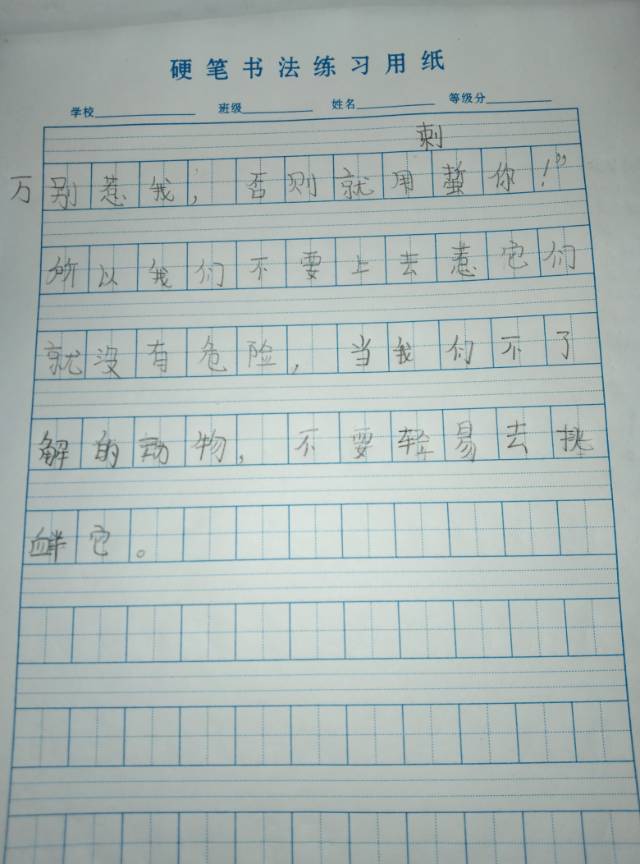 硬笔书法练习用纸
学校 班级 姓名 等级分
刺
万别惹我，否则就用蜇你！”
所以我们不要上去惹它们
就没有危险，当我们不了
解的动物，不要轻易去挑
衅它。